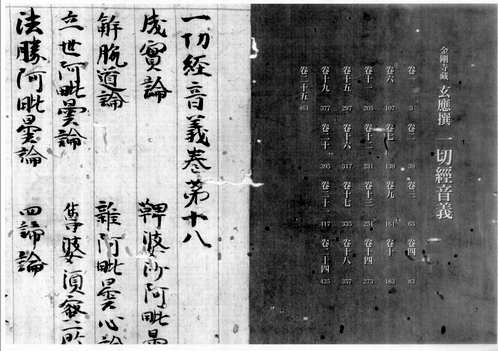 金剛寺蔵 玄應撰 一切經音義
卷一 3 卷二 卷三 63 卷四 83
卷六 107 卷七 139 卷九 161 卷十 183
卷十一 205 卷十二 231 卷十三 251 卷十四 273
卷十五 297 卷十六 317 卷十七 335 卷十八 357
卷十九 377 卷二十 395 卷二十一 417 卷二十四 435
卷二十五 461
一切經音義卷第十八
成實論 鞞婆沙阿毗曇
解脫道論 雜阿毗曇心論
立世阿毗曇論 尊婆須蜜所
法勝阿毗曇論 四諦論